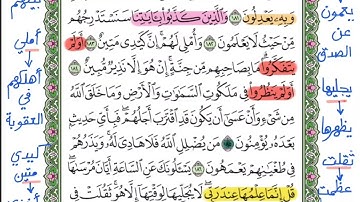 وَبِهِۦ يَعْدِلُونَ ١٨١ وَٱلَّذِينَ كَذَّبُوا۟ بِـَٔايَـٰتِنَا سَنَسْتَدْرِجُهُم
مِّنْ حَيْثُ لَا يَعْلَمُونَ ١٨٢ وَأُمْلِى لَهُمْ إِنَّ كَيْدِى مَتِينٌ ١٨٣ أَوَلَمْ
يَتَفَكَّرُوا۟ مَا بِصَاحِبِهِم مِّن جِنَّةٍ إِنْ هُوَ إِلَّا نَذِيرٌ مُّبِينٌ ١٨٤
أَوَلَمْ يَنظُرُوا۟ فِى مَلَكُوتِ ٱلسَّمَـٰوَٰتِ وَٱلْأَرْضِ وَمَا خَلَقَ ٱللَّهُ
مِن شَىْءٍ وَأَنْ عَسَىٰٓ أَن يَكُونَ قَدِ ٱقْتَرَبَ أَجَلُهُمْ فَبِأَىِّ حَدِيثٍۭ
بَعْدَهُۥ يُؤْمِنُونَ ١٨٥ مَن يُضْلِلِ ٱللَّهُ فَلَا هَادِىَ لَهُۥ وَيَذَرُهُمْ
فِى طُغْيَـٰنِهِمْ يَعْمَهُونَ ١٨٦ يَسْـَٔلُونَكَ عَنِ ٱلسَّاعَةِ أَيَّانَ مُرْسَىٰهَا
قُلْ إِنَّمَا عِلْمُهَا عِندَ رَبِّى لَا يُجَلِّيهَا لِوَقْتِهَآ إِلَّا هُوَ ثَقُلَتْ فِى
عن
الصدق
يجليها
يظهرها
ثقلت
عظمت
أملي
أمهلهم
في
العقوبة
كيدي
متين